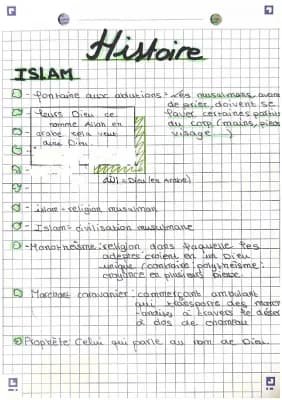 Histoire
ISLAM
- fontaine aux ablutions = Les musulmans, avant
de prier, doivent se
laver certaines parties
du corp (mains, pieds
visage...)
- leurs Dieu ce
nomme Allah en
arabe cela veut
dire Dieu
الله = Dieu (en Arabe)
- islam = religion musulman
- Islam = civilisation musulmane
- Monothéisme : religion dans laquelle les
adeptes croient en un Dieu
unique (contraire polythéisme :
croyance en plusieurs Dieux.
Marchand caravanier : commerçant ambulant
qui transporte des march
-andises à travers le désert
à dos de chameau
Prophète Celui qui parle au nom de Dieu.